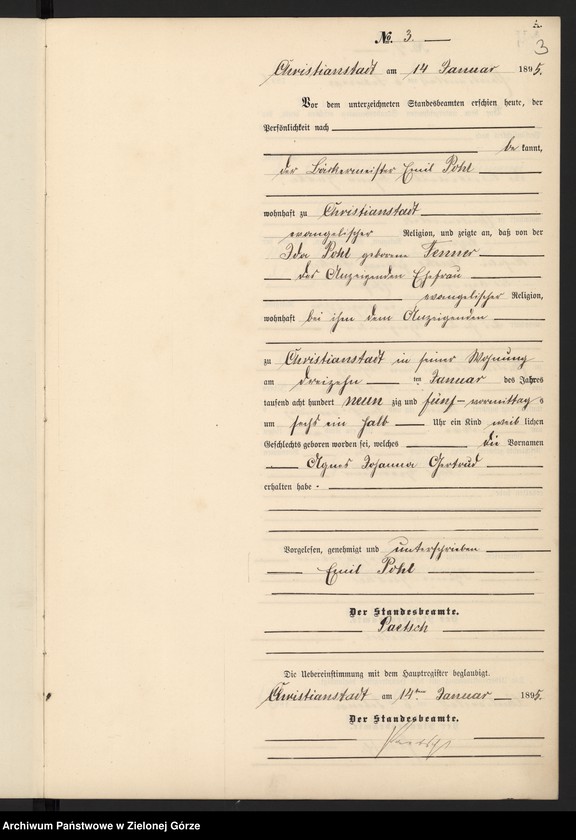 № 3
3
Christianstadt am 14 Januar 1895.
Vor dem unterzeichneten Standesbeamten erschien heute, der
Persönlichkeit nach
bekannt,
der Bäckermeister Emil Pohl
wohnhaft zu Christianstadt
evangelischer Religion, und zeigte an, daß von der
Ida Pohl geborene Fenner
des Anzeigenden Ehefrau
evangelischer Religion,
wohnhaft bei ihm dem Anzeigenden
zu Christianstadt in seiner Wohnung
am dreizehn ten Januar des Jahres
tausend acht hundert neun zig und fünf vormittags
um sechs ein halb Uhr ein Kind weiblichen
Geschlechts geboren worden sei, welches die Vornamen
Agnes Johanna Gertrud
erhalten habe.
Vorgelesen, genehmigt und unterschrieben
Emil Pohl
Der Standesbeamte.
Paetsch
Die Uebereinstimmung mit dem Hauptregister beglaubigt.
Christianstadt am 14ten Januar 1895.
Der Standesbeamte.
Paetsch
Archiwum Państwowe w Zielonej Górze